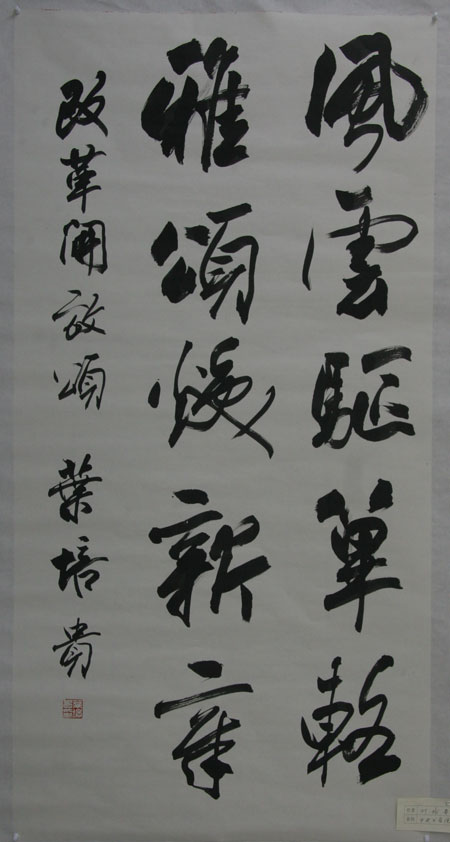 風雲驅篳輅
雅頌煥新章
改革開放頌 葉培貴